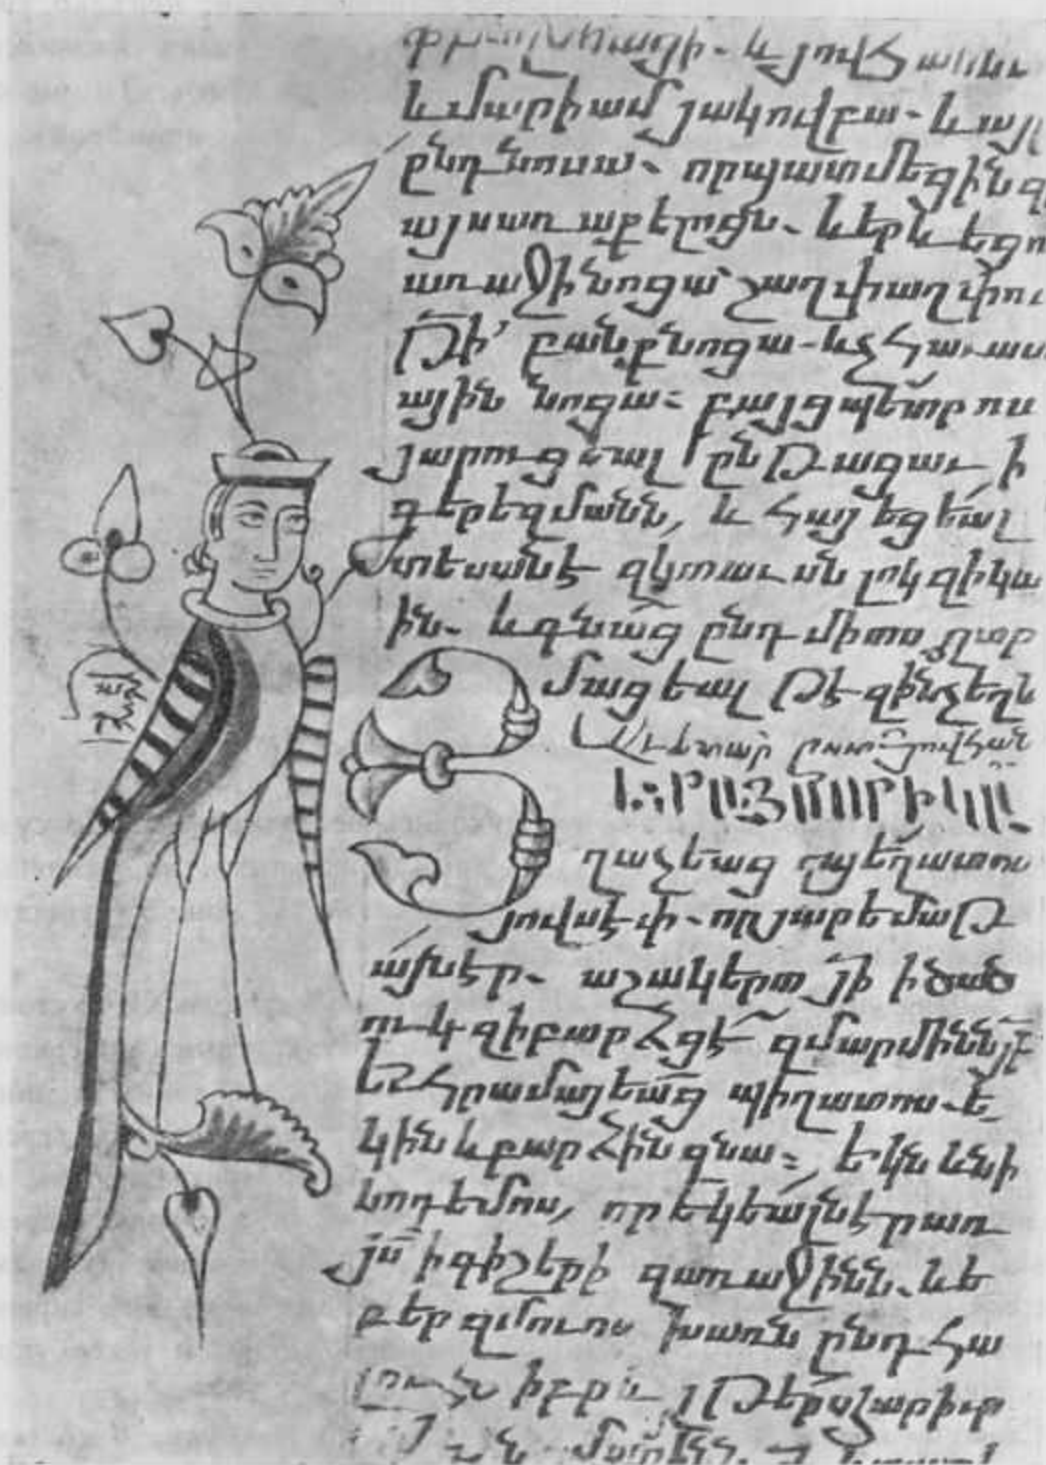 և մարիամ յակովբա. և այլ
ընդ նոսա. որ պատմեցին զ
այս առաքելոցն. և երևեցո
առաջի նոցա շաղփաղփու
թի՛ բանքնոցա. և չհաւատ
ային նոցա: բայց պետրոս
յարուցեալ ընթացաւ ի
գերեզմանն, և հայեցեալ
տեսանէ զկտաւսն լոկ զի կա
ին. և գնաց ընդ միտս զար
մացեալ թէ զինչ եղև
Աւետար ըստ յովհան
ԵՒ ՅԵՏ ԱՅՍՈՐԻԿ Ա
ղաչեաց զպեղատոս
յովսէփ. որ յարեմաթ
այնէր. աշակերտ յի ի ծած
ուկ զի բարձցէ զմարմինն յի
Եւ հրամայեաց պիղատոս. ե
կին և բարձին զնա: եկն և նի
կոդեմոս, որ եկեալ էր առ
յս ի գիշերի զառաջինն. և ե
բեր զմուռս խառն ընդ հա